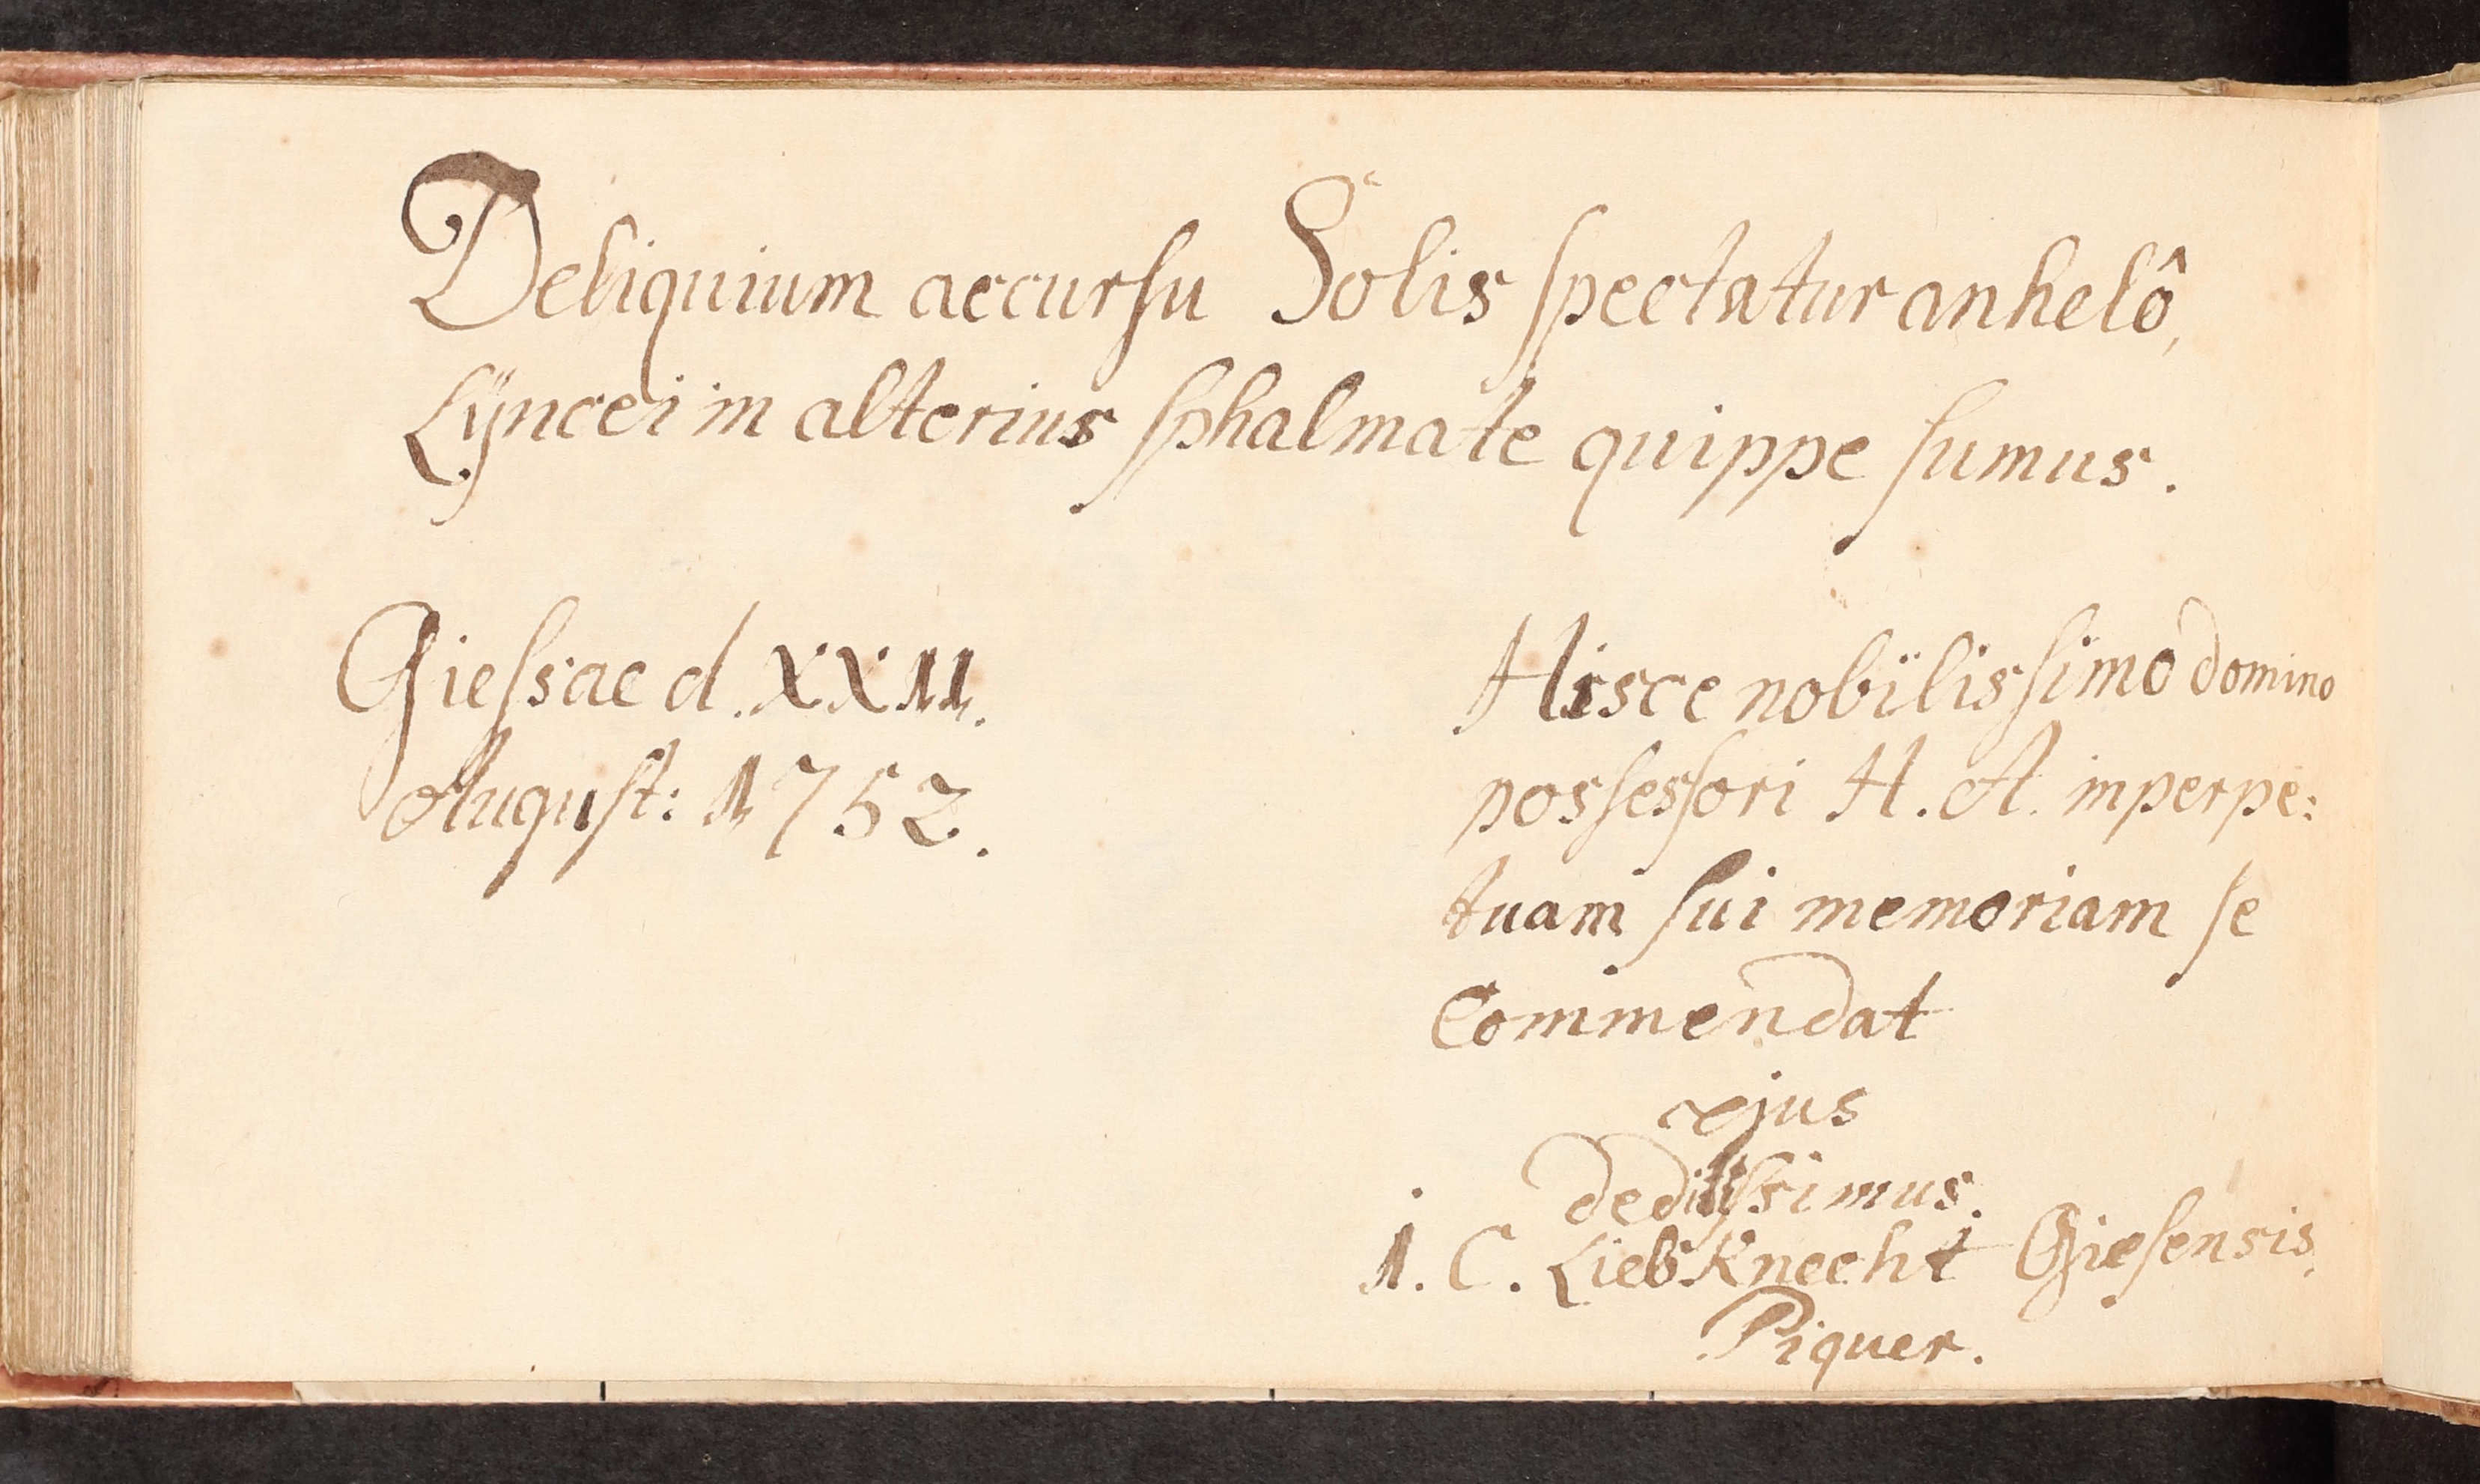 Deliquium accursu Solis spectatur anhelô,
Lÿncei in alterius sphalmate quippe sumus.
Giessae d. XXII.
August: 1752.
Hisce nobilissimo domino
possessori H. A. in perpe:
tuam sui memoriam se
Commendat
ejus
deditissimus.
I. C. LiebKnecht Giesensis,
Piquer.